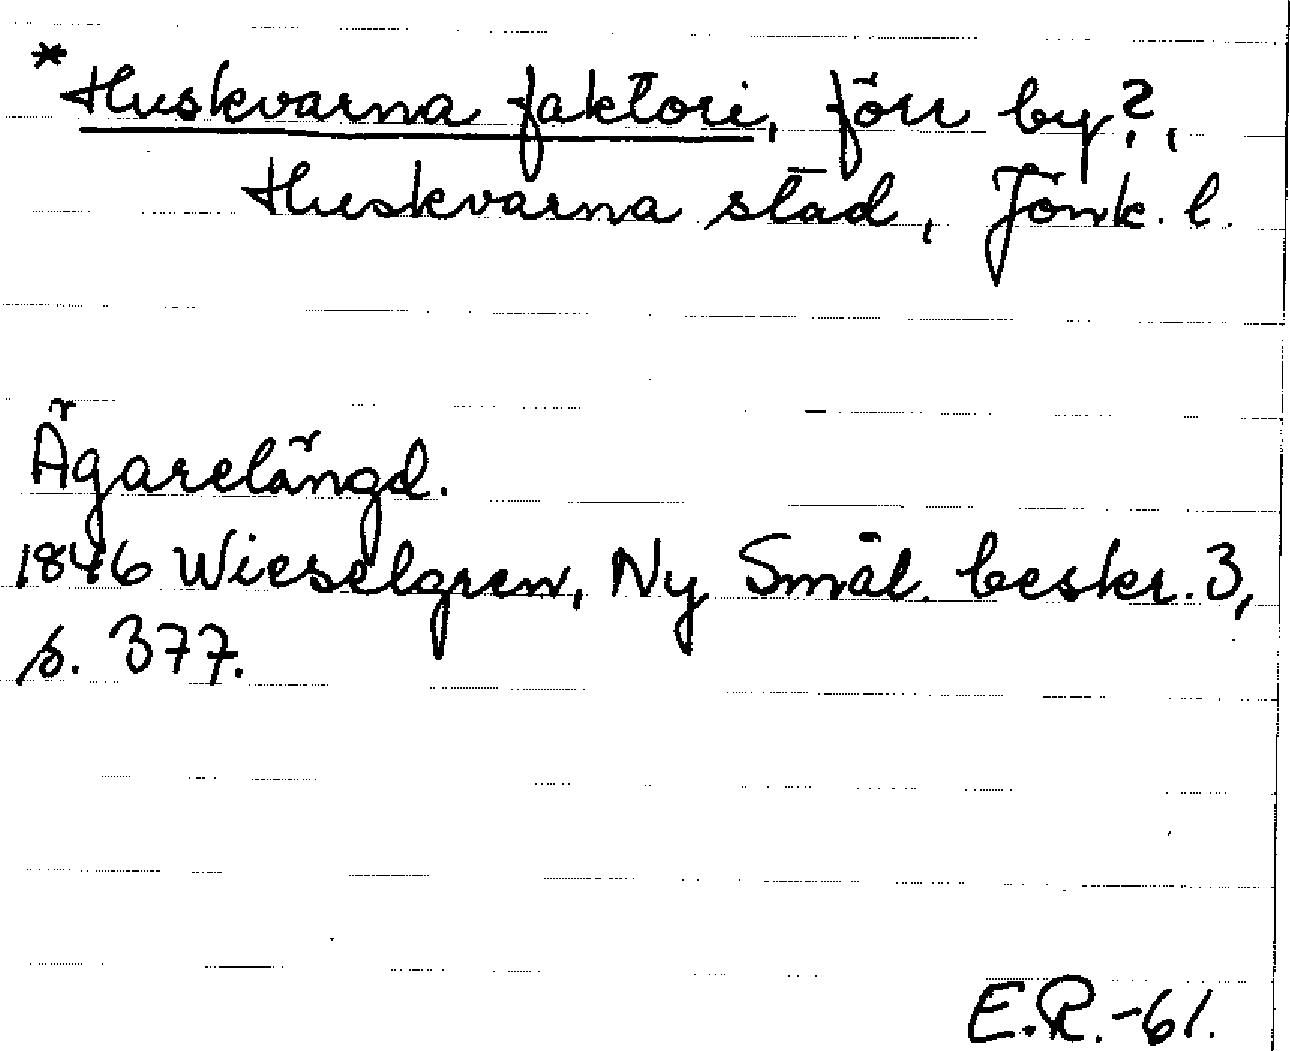 *Huskvarna faktori, förr by?,
Huskvarna stad, Jönk. l.
Ägarelängd.
1846 Wieselgren, Ny Smål. beskr. 3,
s. 377.
E.R.-61.